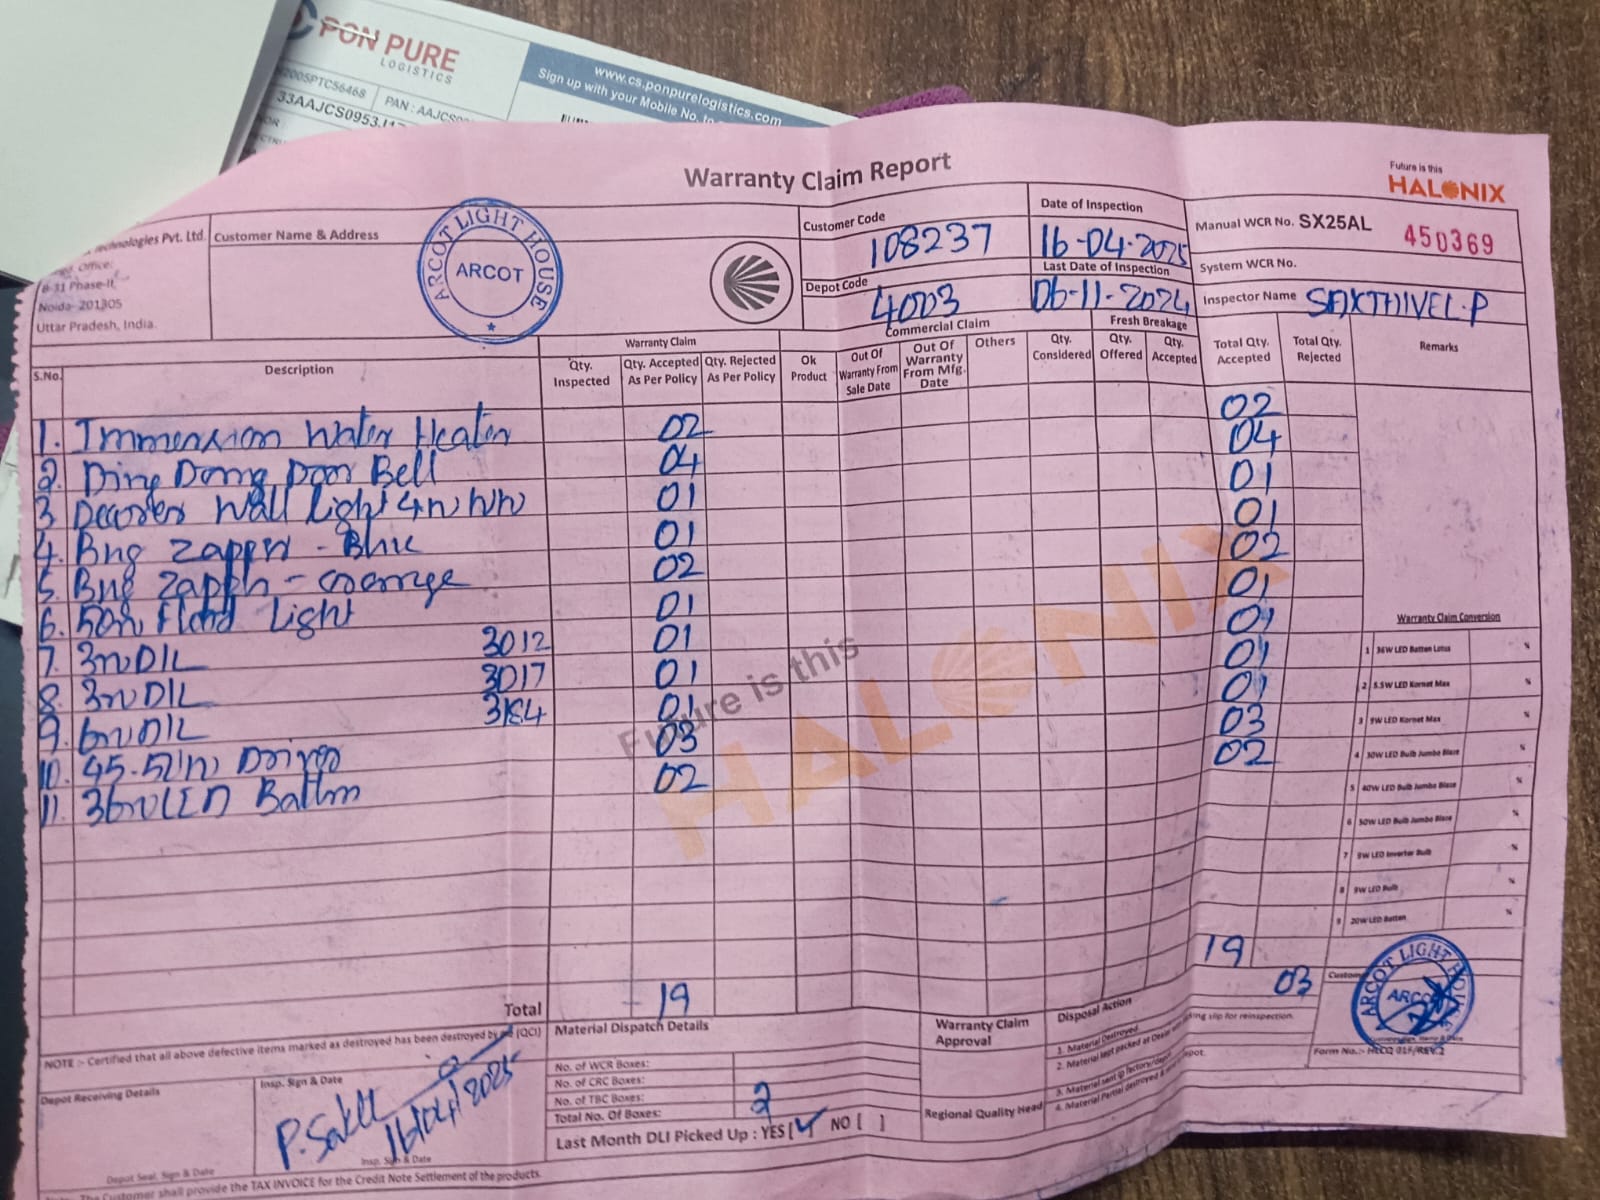 PON PURE
LOGISTICS
www.cs.ponpurelogistics.com
Sign up with your Mobile No. to
2005PTC56468
PAN : AAJCS09
33AAJCS0953J1
Warranty Claim Report
Future is this
HALONIX
Technologies Pvt. Ltd.
Office:
B-31 Phase-II,
Noida- 201305
Uttar Pradesh, India.
Customer Name & Address
ARCOT LIGHT HOUSE
ARCOT
Customer Code
108237
Depot Code
4003
Date of Inspection
16-04-2025
Last Date of Inspection
06-11-2024
Manual WCR No. SX25AL 450369
System WCR No.
Inspector Name SAKTHIVEL.P
S.No. Description
Warranty Claim
Qty. Inspected
Qty. Accepted As Per Policy
Qty. Rejected As Per Policy
Ok Product
Commercial Claim
Out Of Warranty From Sale Date
Out Of Warranty From Mfg. Date
Others
Qty. Considered
Fresh Breakage
Qty. Offered
Qty. Accepted
Total Qty. Accepted
Total Qty. Rejected
Remarks
1. Immersion Water Heater 02 02
2. Ding Dong Door Bell 04 04
3 Wall Light 4W WW 01 01
4. Bug Zapper - Blue 01 01
5. Bug Zapper - Orange 02 02
6. 50W Flood Light 01 01
7. 3W DIL 3012 01 01
8. 3W DIL 3017 01 01
9. 6W DIL 01 01
10. Driver 03 03
11. 36W LED Batten 02 02
Future is this
HALONIX
Warranty Claim Conversion
1 36W LED Batten Lotus %
2 5.5W LED Kornet Max %
3 9W LED Kornet Max %
4 30W LED Bulb Jumbo Blaze %
5 40W LED Bulb Jumbo Blaze %
6 50W LED Bulb Jumbo Blaze %
7 9W LED Inverter Bulb %
8 9W LED Bulb %
9 20W LED Batten %
Total 19 19
03
NOTE :- Certified that all above defective items marked as destroyed has been destroyed by me (QCI)
Depot Receiving Details
Depot Seal. Sign & Date
Insp. Sign & Date
16/04/2025
Insp. Sign & Date
Material Dispatch Details
No. of WCR Boxes:
No. of CRC Boxes:
No. of TBC Boxes:
Total No. Of Boxes: 2
Last Month DLI Picked Up : YES [✓] NO [ ]
Warranty Claim Approval
Regional Quality Head
Disposal Action
1. Material Destroyed
2. Material kept packed at Dealer slip for reinspection.
3. Material sent @ factory/depot
4. Material Partial destroyed &
ARCOT LIGHT HOUSE
ARCOT
Form No.:- HLCQ 01F/REV.2
The Customer shall provide the TAX INVOICE for the Credit Note Settlement of the products.